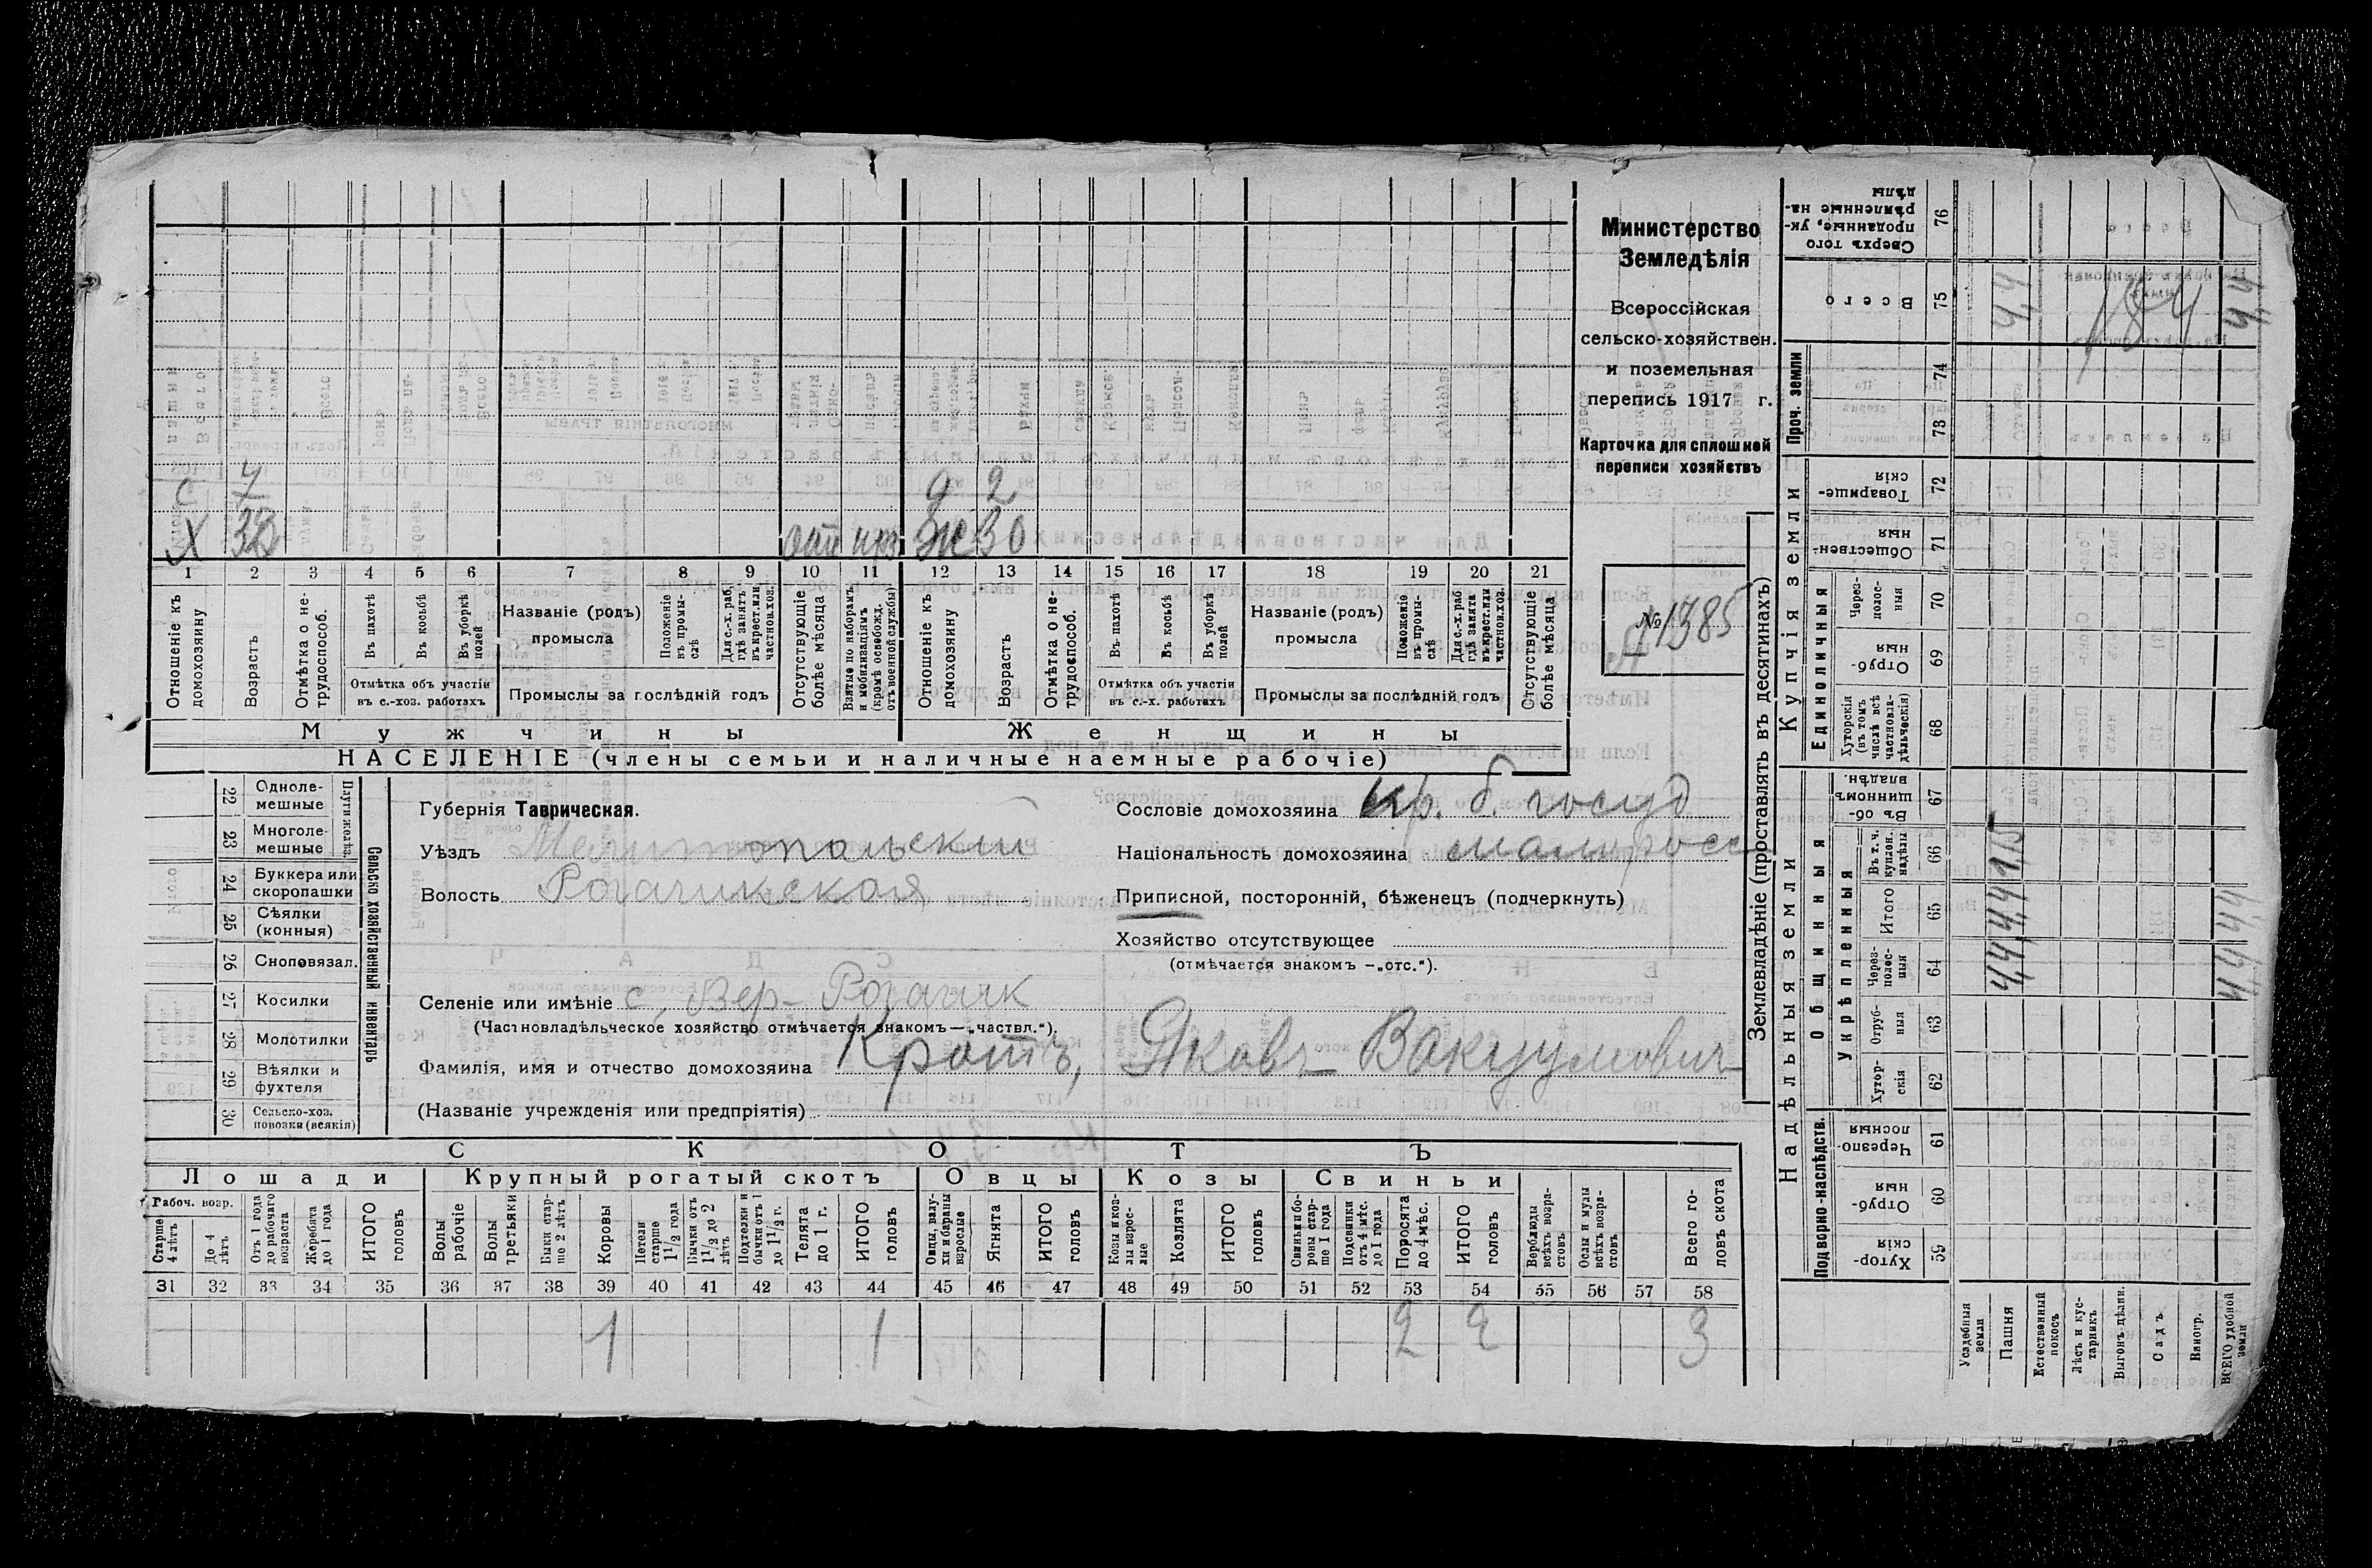 С 7 д 2
Х 32 отс моб Ж 30
1 2 3 4 5 6 7 8 9 10 11 12 13 14 15 16 17 18 19 20 21
Отношеніе къ домохозяину
Возрастъ
Отмѣтка о не-трудоспособ.
Въ пахотѣ
Въ косьбѣ
Въ уборкѣ полей
Отмѣтка объ участіи въ с.-хоз. работахъ
Названіе (родъ) промысла
Положеніе въ промы-слѣ
Для с.-х. раб. гдѣ занятъ въ крест. или частнов. хоз.
Промыслы за послѣдній годъ
Отсутствующіе болѣе мѣсяца
Взятые по наборамъ и мобилизаціямъ (кромѣ освобожд. отъ военной службы)
Отношеніе къ домохозяину
Возрастъ
Отмѣтка о не-трудоспособ.
Въ пахотѣ
Въ косьбѣ
Въ уборкѣ полей
Отмѣтка объ участіи въ с.-х. работахъ
Названіе (родъ) промысла
Положеніе въ промы-слѣ
Для с.-х. раб. гдѣ занята въ крест. или частнов. хоз.
Промыслы за послѣдній годъ
Отсутствующіе болѣе мѣсяца
Мужчины Женщины
НАСЕЛЕНІЕ (члены семьи и наличные наемные рабочіе)
Министерство
Земледѣлія
Всероссійская
сельско-хозяйствен.
и поземельная
перепись 1917 г.
Карточка для сплошной
переписи хозяйствъ
№ 1385
22 Одноле-мешные
23 Многоле-мешные
Плуги желѣз.
24 Буккера или скоропашки
25 Сѣялки (конныя)
26 Сноповязал.
27 Косилки
28 Молотилки
29 Вѣялки и фухтеля
30 Сельско-хоз. повозки (всякія)
Сельско хозяйственный инвентарь
Губернія Таврическая.
Уѣздъ Мелитопольский
Волость Рогачикская
Селеніе или имѣніе с. Вер-Рогачик
(Частновладѣльческое хозяйство отмѣчается знакомъ—„частвл.“).
Фамилія, имя и отчество домохозяина Кротъ, Яковъ Вакуумович
(Названіе учрежденія или предпріятія)
Сословіе домохозяина кр. б. госуд
Національность домохозяина малоросс
Приписной, посторонній, бѣженецъ (подчеркнуть)
Хозяйство отсутствующее
(отмѣчается знакомъ —„отс.“).
СКОТЪ
Лошади Крупный рогатый скотъ Овцы Козы Свиньи
Рабоч. возр.
Старше 4 лѣтъ
До 4 лѣтъ
Отъ 1 года до рабочаго возраста
Жеребята до 1 года
ИТОГО головъ
Волы рабочіе
Волы третьяки
Быки стар-ше 2 лѣтъ
Коровы
Нетели старше 1½ года
Бычки отъ 1½ до 2 лѣтъ
Подтелки и бычки отъ 1 до 1½ г.
Телята до 1 г.
ИТОГО головъ
Овцы, валу-хи и бараны взрослые
Ягнята
ИТОГО головъ
Козы и коз-лы взрос-лые
Козлята
ИТОГО головъ
Свиньи и бо-ровы стар-ше 1 года
Подсвинки отъ 4 мѣс. до 1 года
Поросята до 4 мѣс.
ИТОГО головъ
Верблюды всѣхъ возра-стовъ
Ослы и мулы всѣхъ возра-стовъ
Всего го-ловъ скота
31 32 33 34 35 36 37 38 39 40 41 42 43 44 45 46 47 48 49 50 51 52 53 54 55 56 57 58
1 1 2 2 3
Землевладѣніе (проставлять въ десятинахъ)
Надѣльныя земли Купчія земли Проч. земли
Подворно-наслѣдств. Общинныя Единоличныя
Укрѣпленныя
Хутор-скія 59
Отруб-ныя 60
Черезпо-лосныя 61
Хутор-скія 62
Отруб-ныя 63
Через-полос-ныя 64
Итого 65
Въ т. ч. куплен. надѣлы 66
Въ об-щинномъ владѣн. 67
Хуторскія (въ томъ числѣ всѣ частновла-дѣльческія) 68
Отруб-ныя 69
Через-полос-ныя 70
Обществен-ныя 71
Товарище-скія 72
73
74
Всего 75
Сверхъ того проданные, ук-рѣпленные на-дѣлы 76
Усадебныя земли
Пашня 4,4 4,4 1,5 4,4
Естественный покосъ
Лѣсъ и кус-тарникъ
Выгонъ цѣлин.
Садъ
Виногр.
ВСЕГО удобной земли 4,4 4,4 4,4
184